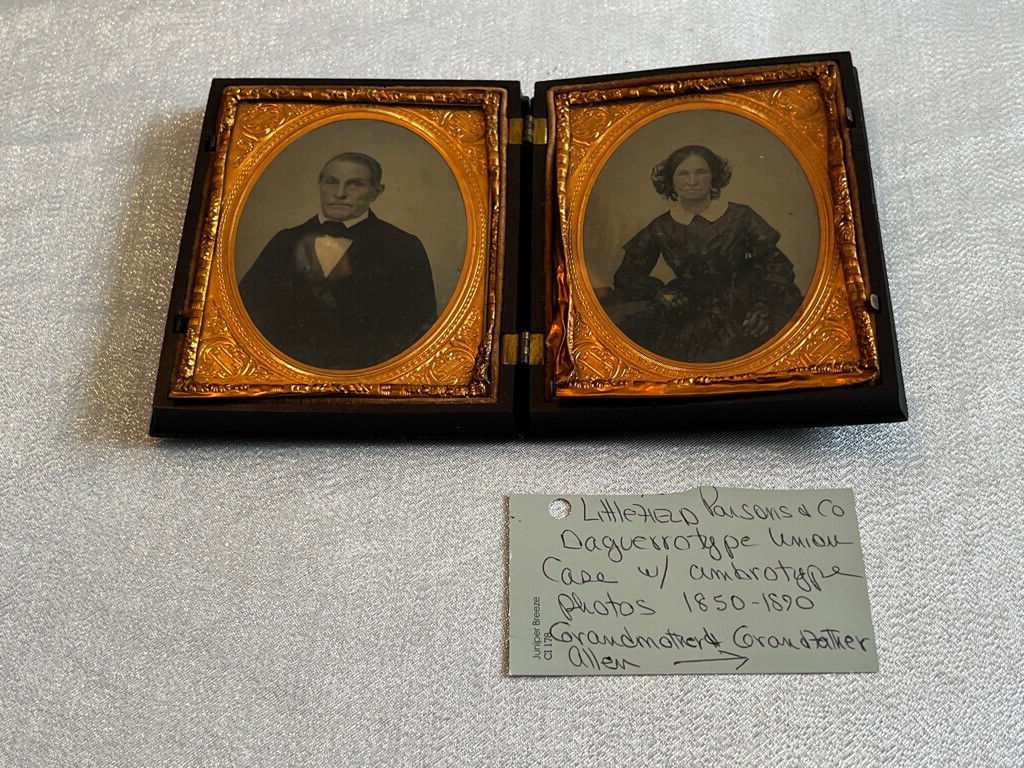 LITTLEFIELD Parsons & Co
Daguerrotype Union
Case w/ ambrotype
photos 1850-1890
Grandmother & Grandfather
Allen →
Juniper Breeze
CI 178